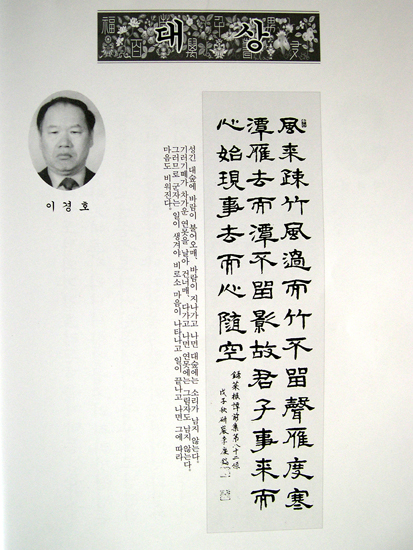 대상
이경호
風來疎竹風過而竹不留聲雁度寒
潭雁去而潭不留影故君子事來而
心始現事去而心隨空
錄菜根譚前集第八十二條
戊子秋研農李庚
성긴 대숲에 바람이 불어오매, 바람이 지나가고 나면 대숲에는 소리가 남지 않는다.
기러기떼가 차가운 연못을 날아 건너매, 다가고 나면 연못에는 그림자도 남지 않는다.
그러므로 군자는 일이 생겨야 비로소 마음이 나타나고 일이 끝나고 나면 그에 따라
마음도 비워진다.